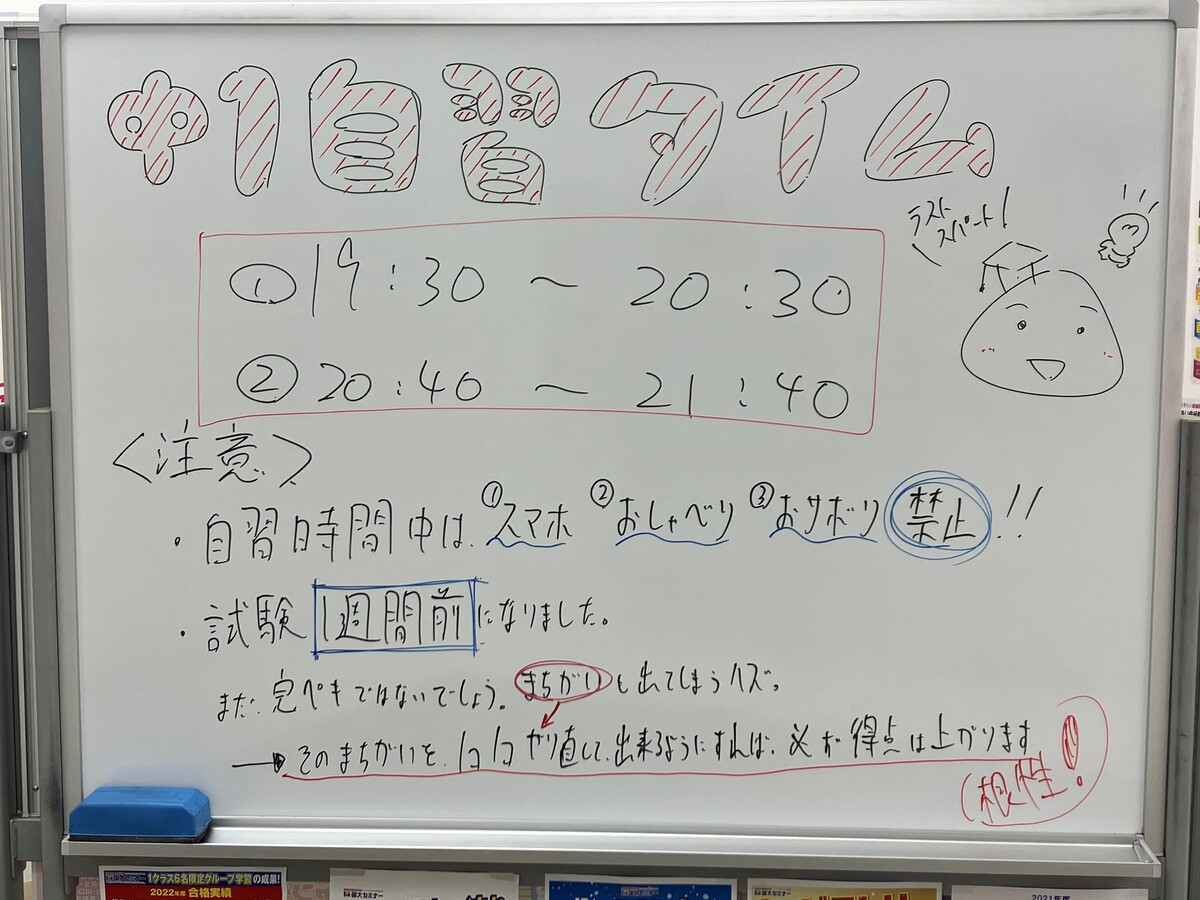 中1自習タイム
ラスト
スパート!
① 19:30 〜 20:30
② 20:40 〜 21:40
〈注意〉
・自習時間中は、①スマホ ②おしゃべり ③おサボリ 禁止!!
・試験 1週間前になりました。
まだ、完ペキではないでしょう。まちがいも出てしまうハズ。
→そのまちがいを、1コ1コやり直して、出来るようにすれば、必ず得点は上がります
(根性!)
1クラス6名限定グループ学習の成果!
2022年度 合格実績
国大セミナー
国大セミナー
2021年度